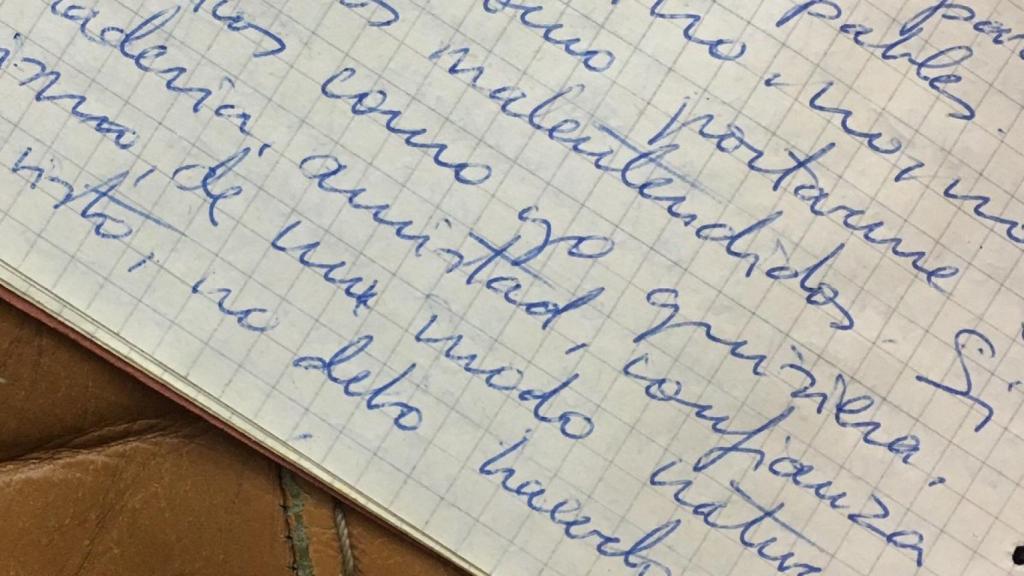 par
pables.
no, no, no
como portarme
malentendidos. Si
como yo quisiera,
adería, amistad, confianza
ismo, de un modo natur
visto, no debo hacerlo